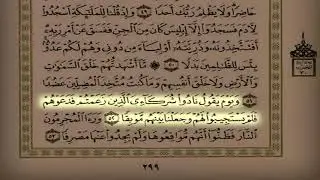 حَاضِرًا وَلَا يَظْلِمُ رَبُّكَ أَحَدًا ٤٩ وَإِذْ قُلْنَا لِلْمَلَٰٓئِكَةِ ٱسْجُدُوا۟
لِءَادَمَ فَسَجَدُوٓا۟ إِلَّآ إِبْلِيسَ كَانَ مِنَ ٱلْجِنِّ فَفَسَقَ عَنْ أَمْرِ رَبِّهِۦٓ
أَفَتَتَّخِذُونَهُۥ وَذُرِّيَّتَهُۥٓ أَوْلِيَآءَ مِن دُونِى وَهُمْ لَكُمْ عَدُوٌّۢ
بِئْسَ لِلظَّٰلِمِينَ بَدَلًا ٥٠ مَّآ أَشْهَدتُّهُمْ خَلْقَ ٱلسَّمَٰوَٰتِ
وَٱلْأَرْضِ وَلَا خَلْقَ أَنفُسِهِمْ وَمَا كُنتُ مُتَّخِذَ ٱلْمُضِلِّينَ عَضُدًا
٥١ وَيَوْمَ يَقُولُ نَادُوا۟ شُرَكَآءِىَ ٱلَّذِينَ زَعَمْتُمْ فَدَعَوْهُمْ
فَلَمْ يَسْتَجِيبُوا۟ لَهُمْ وَجَعَلْنَا بَيْنَهُم مَّوْبِقًا ٥٢ وَرَءَا ٱلْمُجْرِمُونَ
ٱلنَّارَ فَظَنُّوٓا۟ أَنَّهُم مُّوَاقِعُوهَا وَلَمْ يَجِدُوا۟ عَنْهَا مَصْرِفًا ٥٣
٢٩٩